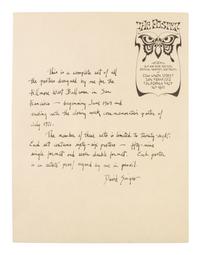 THE POSTER
SAN FRANCISCO
This is a complete set of all
the posters designed by me for the
Fillmore West Ballroom in San
Francisco — beginning June 1969 and
ending with the closing week commemorative poster of
July 1971.
The number of these sets is limited to twenty-eight.
Each set contains sixty-six posters — fifty-nine
single format and seven double format. Each poster
is an artists' proof signed by me in pencil.
David Singer